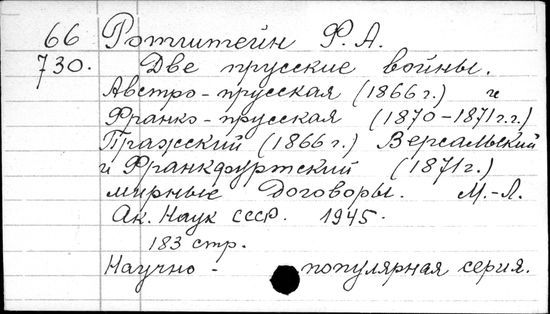 66 Ротштейн Ф. А.
730. Две прусские войны.
Австро-прусская (1866 г.) и
Франко-прусская (1870-1871 г.г.)
Пражский (1866 г.) Версальский
и Франкфуртский (1871 г.)
мирные договоры. М.-Л.
Ак. Наук СССР. 1945.
183 стр.
Научно - популярная серия.